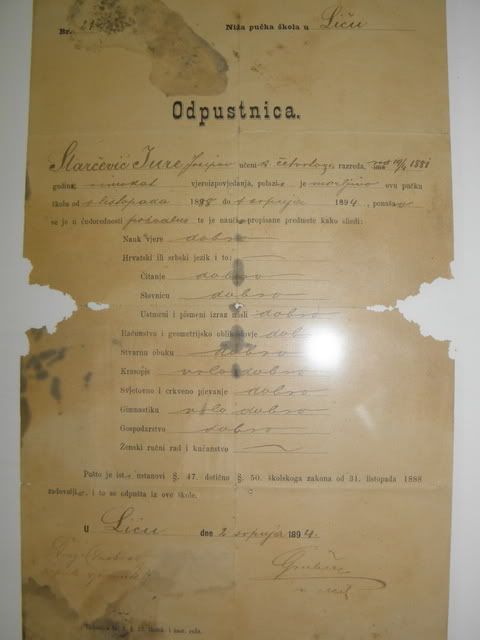 Br. 21 Niža pučka škola u Liću
Odpustnica.
Starčević Jure Josipov učenik četvrtoga razreda, rod 19/4 1881
godine, rimokat vjeroizpovjedanja, polazio je marljivo ovu pučku
školu od 1 listopada 1888 do 1 srpnja 1894, ponašao
se je u ćudorednosti pohvalno te je naučio propisane predmete kako sliedi:
Nauk vjere dobro
Hrvatski ili srbski jezik i to:
Čitanje dobro
Slovnicu dobro
Ustmeni i pismeni izraz misli dobro
Računstvo i geometrijsko oblikoslovje dob
Stvarnu obuku dobro
Krasopis vrlo dobro
Svjetovno i crkveno pjevanje dobro
Gimnastiku vrlo dobro
Gospodarstvo dobro
Ženski ručni rad i kućanstvo
Pošto je ist. ustanovi §. 47. dotično §. 50. školskoga zakona od 31. listopada 1888
zadovoljio, i to se odpušta iz ove škole.
u Liću dne 2 srpnja 1894.